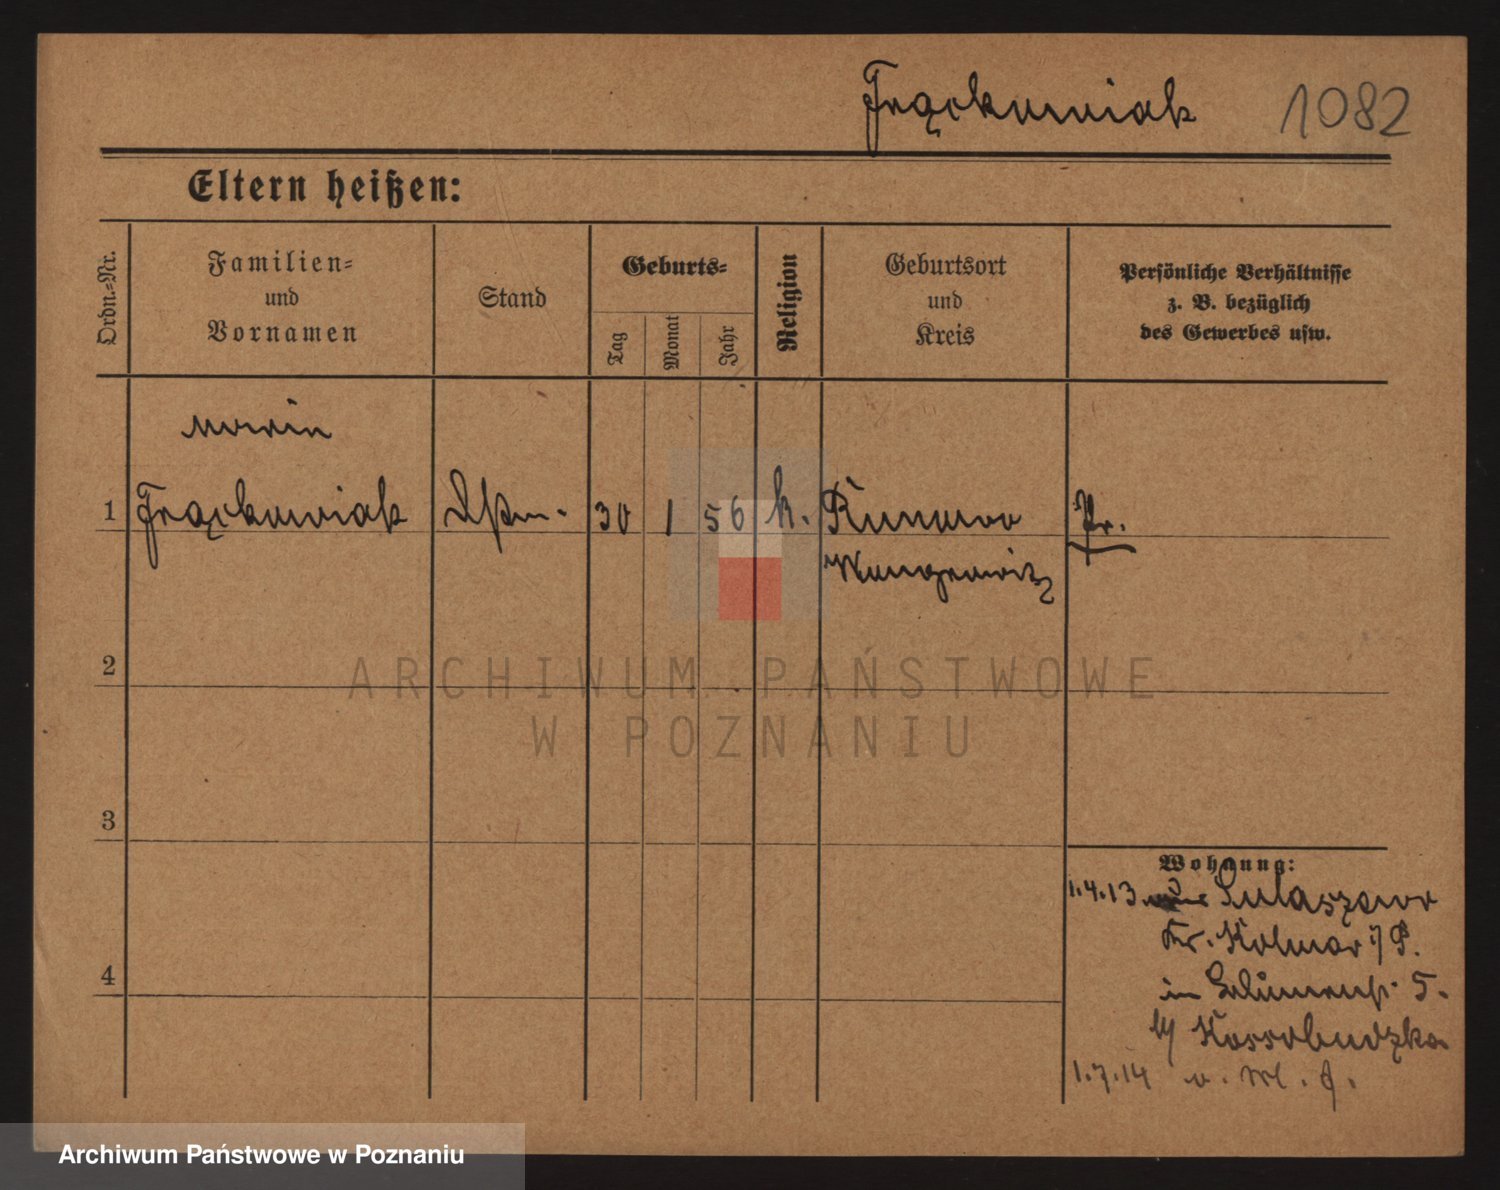 Frąckowiak 1082
Eltern heißen:
Ordn.=Nr.
Familien=
und
Vornamen
Stand
Geburts=
Tag
Monat
Jahr
Religion
Geburtsort
und
Kreis
Persönliche Verhältnisse
z. B. bezüglich
des Gewerbes usw.
Maria
1 Frąckowiak 30 1 56 k. Runowo Pr.
Wongrowitz
2
3
4
Wohnung:
1.4.13 aus
Kr. Kolmar i/P.
in 5.
b/ Kossobudzka
1.7.14
ARCHIWUM PAŃSTWOWE
W POZNANIU
Archiwum Państwowe w Poznaniu